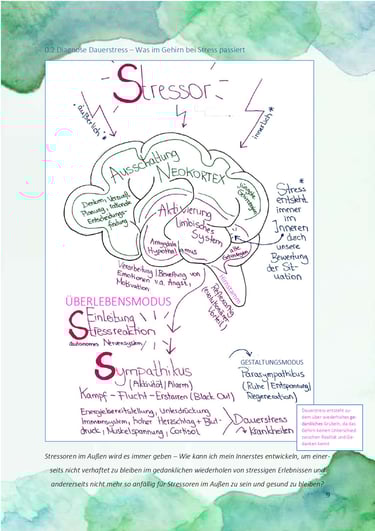 0.2 Diagnose Dauerstress – Was im Gehirn bei Stress passiert
Stressor
äußerlich *
innerlich *
Ausschaltung
NEOKORTEX
Denken, Vernunft
Planung, rationale
Entscheidungs-
findung
Aktivierung
limbisches
System
Amygdala
Hypothalamus
alte
* Stress
entsteht
immer
im
Inneren
durch
unsere
Bewertung
der Sit-
uation
Verarbeitung / Bewertung von
Emotionen v.a. Angst,
Motivation
Hirnstamm
Reflexartig
(evolutionärer
Vorteil)
ÜBERLEBENSMODUS
Einleitung
Stressreaktion
autonomes Nervensystem
Sympathikus
(Aktivität / Alarm)
Kampf – Flucht – Erstarren (Black Out)
GESTALTUNGSMODUS
Parasympathikus
(Ruhe / Entspannung /
Regeneration)
Energiebereitstellung, Unterdrückung
Immunsystem, hoher Herzschlag + Blut-
druck, Muskelspannung, Cortisol
Dauerstress
Krankheiten
Dauerstress entsteht zu-
dem über wiederholtes ge-
dankliches Grübeln, da das
Gehirn keinen Unterschied
zwischen Realität und Ge-
danken kennt
Stressoren im Außen wird es immer geben – Wie kann ich mein Innerstes entwickeln, um einer-
seits nicht verhaftet zu bleiben im gedanklichen wiederholen von stressigen Erlebnissen und
andererseits nicht mehr so anfällig für Stressoren im Außen zu sein und gesund zu bleiben?